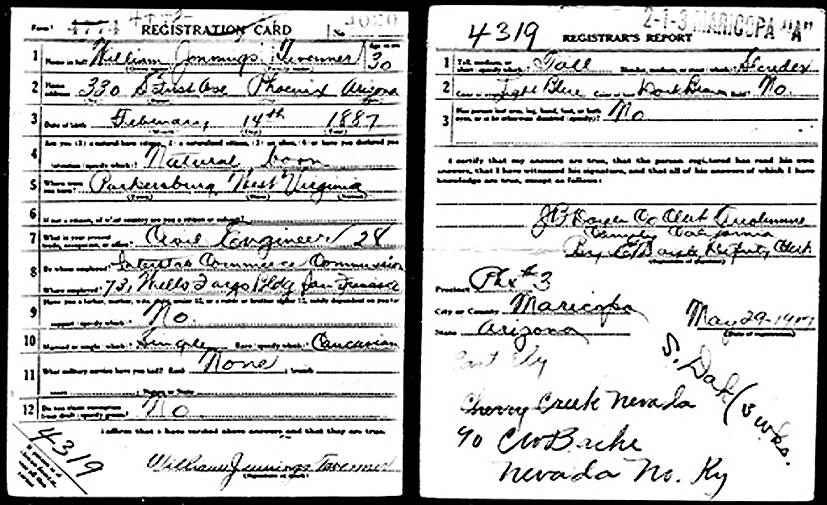 Form 1 4774 REGISTRATION CARD No. 4020
1 Name in full William Jennings Tavenner Age in yrs 30
2 Home address 330 S First Ave Phoenix Arizona
3 Date of birth February 14th 1887
4 Are you (1) a natural-born citizen, (2) a naturalized citizen, (3) an alien, (4) or have you declared your
intention (specify which)? Natural born
5 Where were you born? Parkersburg West Virginia
6 If not a citizen, of what country are you a citizen or subject?
7 What is your present trade, occupation, or office? Civil Engineer 28
8 By whom employed? Interstate Commerce Commission
Where employed? 73, Wells Fargo Bldg San Francisco
9 Have you a father, mother, wife, child under 12, or a sister or brother under 12, solely dependent on you for
support (specify which)? No.
10 Married or single (which)? Single Race (specify which)? Caucasian
11 What military service have you had? Rank None branch
years Nation or State
12 Do you claim exemption from draft (specify grounds)? No
I affirm that I have verified above answers and that they are true.
4319
William Jennings Tavenner
(Signature or mark)
2-1-3 MARICOPA "A"
4319 REGISTRAR'S REPORT
1 Tall, medium, or short (specify which)? Tall Slender, medium, or stout (which)? Slender
2 Color of eyes? Light Blue Color of hair? Dark Brown Bald? No.
3 Has person lost arm, leg, hand, foot, or both
eyes, or is he otherwise disabled (specify)? No
I certify that my answers are true, that the person registered has read his own
answers, that I have witnessed his signature, and that all of his answers of which I have
knowledge are true, except as follows:
Co Clerk
County California
By Deputy Clerk
(Signature of registrar)
Precinct Phx #3
City or County Maricopa May 29-1917
State Arizona (Date of registration)
East Ely S. Dak (3 wks.
Cherry Creek Nevada
c/o CW Bache
Nevada No. Ry